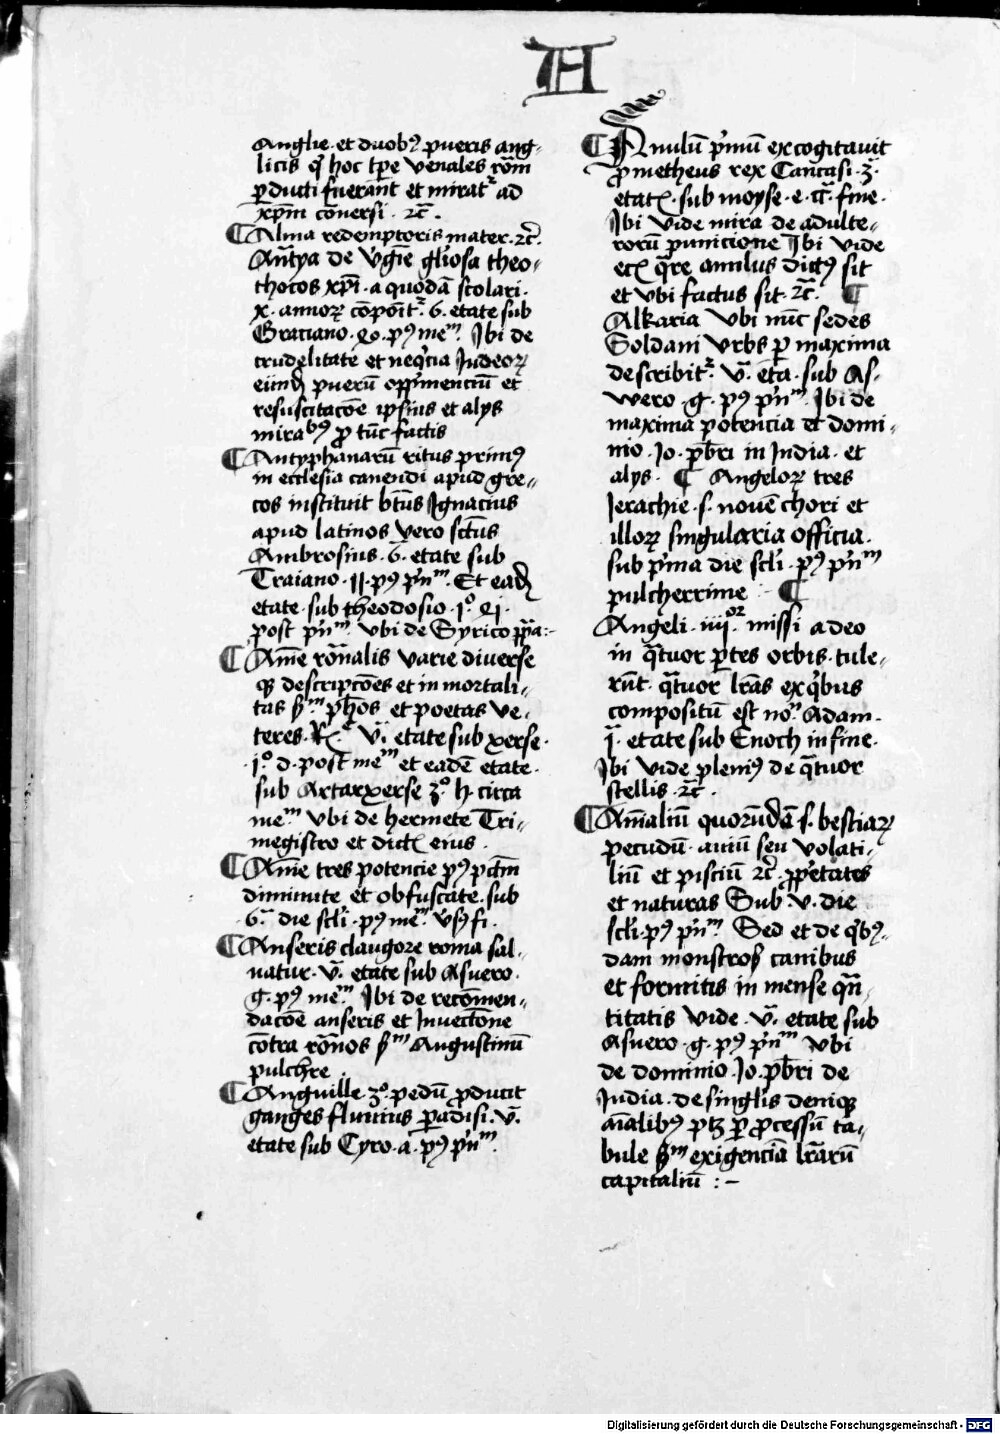 A
Anglie · et duobꝰ pueris ang-
licis qͥ hoc tp̄e venales rōm
ꝑducti fuerant et miratͬ ad
xp̄m cōuersi · ⁊c̄ ·
¶ Alma redemptoris mater · ⁊c̄ ·
Antya de vgīe gliosa theo-
thocos xp̄i · a quodā scolari ·
x · annoꝝ cōpoītͬ · 6 · etate sub
Graciano · pꝰ meᵐ · Ibi de
crudelitate et neqͥcia Iudeoꝝ
puerū opp̄menciū et
resuscitacōe ipsius et alys
mirabꝰ ꝓ tūc factis
¶ Antyphanarū ritus primꝰ
in ecclesia canendi apud gre-
cos instituit bt̄us Ignacius
apud latinos vero sct̄us
Ambrosius · 6̄ · etate sub
Traiano · 11 · pꝰ pn̄ᵐ · Et eadē
etate · sub theodosio · 1º
post pn̄ᵐ · vbi de Syrico ppa :-
¶ Aīe rōnalis varie diuerse
qꝫ descripcōes et inmortali-
tas sᵐ ph̄os et poetas ve-
teres · v̄ · etate sub xerse ·
1º d · post meᵐ et eadē etate ·
sub Artarxerse ʒº h · circa
meᵐ vbi de hermete Tri-
megistro et dict̄ eius ·
¶ Aīe tres potencie pꝰ pctm̄
diminute et obfuscate · sub
6ª die scl̄i · pꝰ meᵐ vsꝰ fi ·
¶ Anseris clangore roma sal-
uatur · v̄ · etate sub Asuero ·
g · pꝰ meᵐ · Ibi de recōmen-
dacōe anseris et Inuectōne
cōtra rōnos sᵐ Augustinū
pulchre ·
¶ Anguille · ʒº · pedū ꝓducit
ganges fluuius ꝑadisi · v̄ ·
etate sub Cyro · a · pꝰ pn̄ᵐ ·
¶ Anulū pͥmū excogitauit
ꝓmetheus rex Caucasi · ʒª ·
etatꝭ · sub moyse · e · fine ·
Ibi vide mira de adulte-
rorū punicione Ibi vide
ecꝭ qͣre anulus dictꝰ sit
et vbi factus sit · ⁊c̄ · ¶
Alkaria vbi nūc sedes
Soldani vrbs ꝑ maxima
describitͬ · v̄ · etā · sub As-
wero · g · pꝰ pn̄ᵐ · Ibi de
maxima potencia et domi-
nio · Io · pb̄ri in India · et
alys · ¶ Angeloꝝ tres
Ierachie · s · nouē chori et
illoꝝ singularia officia ·
sub pͥma die scl̄i · pꝰ pn̄ᵐ
pulcherrime :- ¶
Angeli · iiijᵒʳ · missi a deo
in qͣtuor ꝑtes orbis · tule-
rūt · qͣtuor lr̄as ex qͥbus
compositū est noᵐ Adam ·
j̄ · etate sub Enoch in fine ·
Ibi vide pleniꝰ de qͣtuor
stellis · ⁊c̄ ·
¶ Aīaliū quorūdā s · bestiaꝝ
pecudū · auiū seu volati-
liū et pisciū ⁊c̄ · ꝓpͥetates
et naturas Sub v · die
scl̄i · pꝰ pn̄ᵐ · Sed et de qͥbꝰ-
dam monstros̄ canibus
et formitis in mense qͣn-
titatis vide · v̄ · etate sub
Asuero · g · pꝰ pn̄ᵐ vbi
de dominio · Io · pb̄ri de
India · de singl̄is deniqꝫ
aīalibꝰ ptꝫ ꝑ ꝓcessū ta-
bule sᵐ exigenciā lr̄arū
capitaliū :-
Digitalisierung gefördert durch die Deutsche Forschungsgemeinschaft - DFG